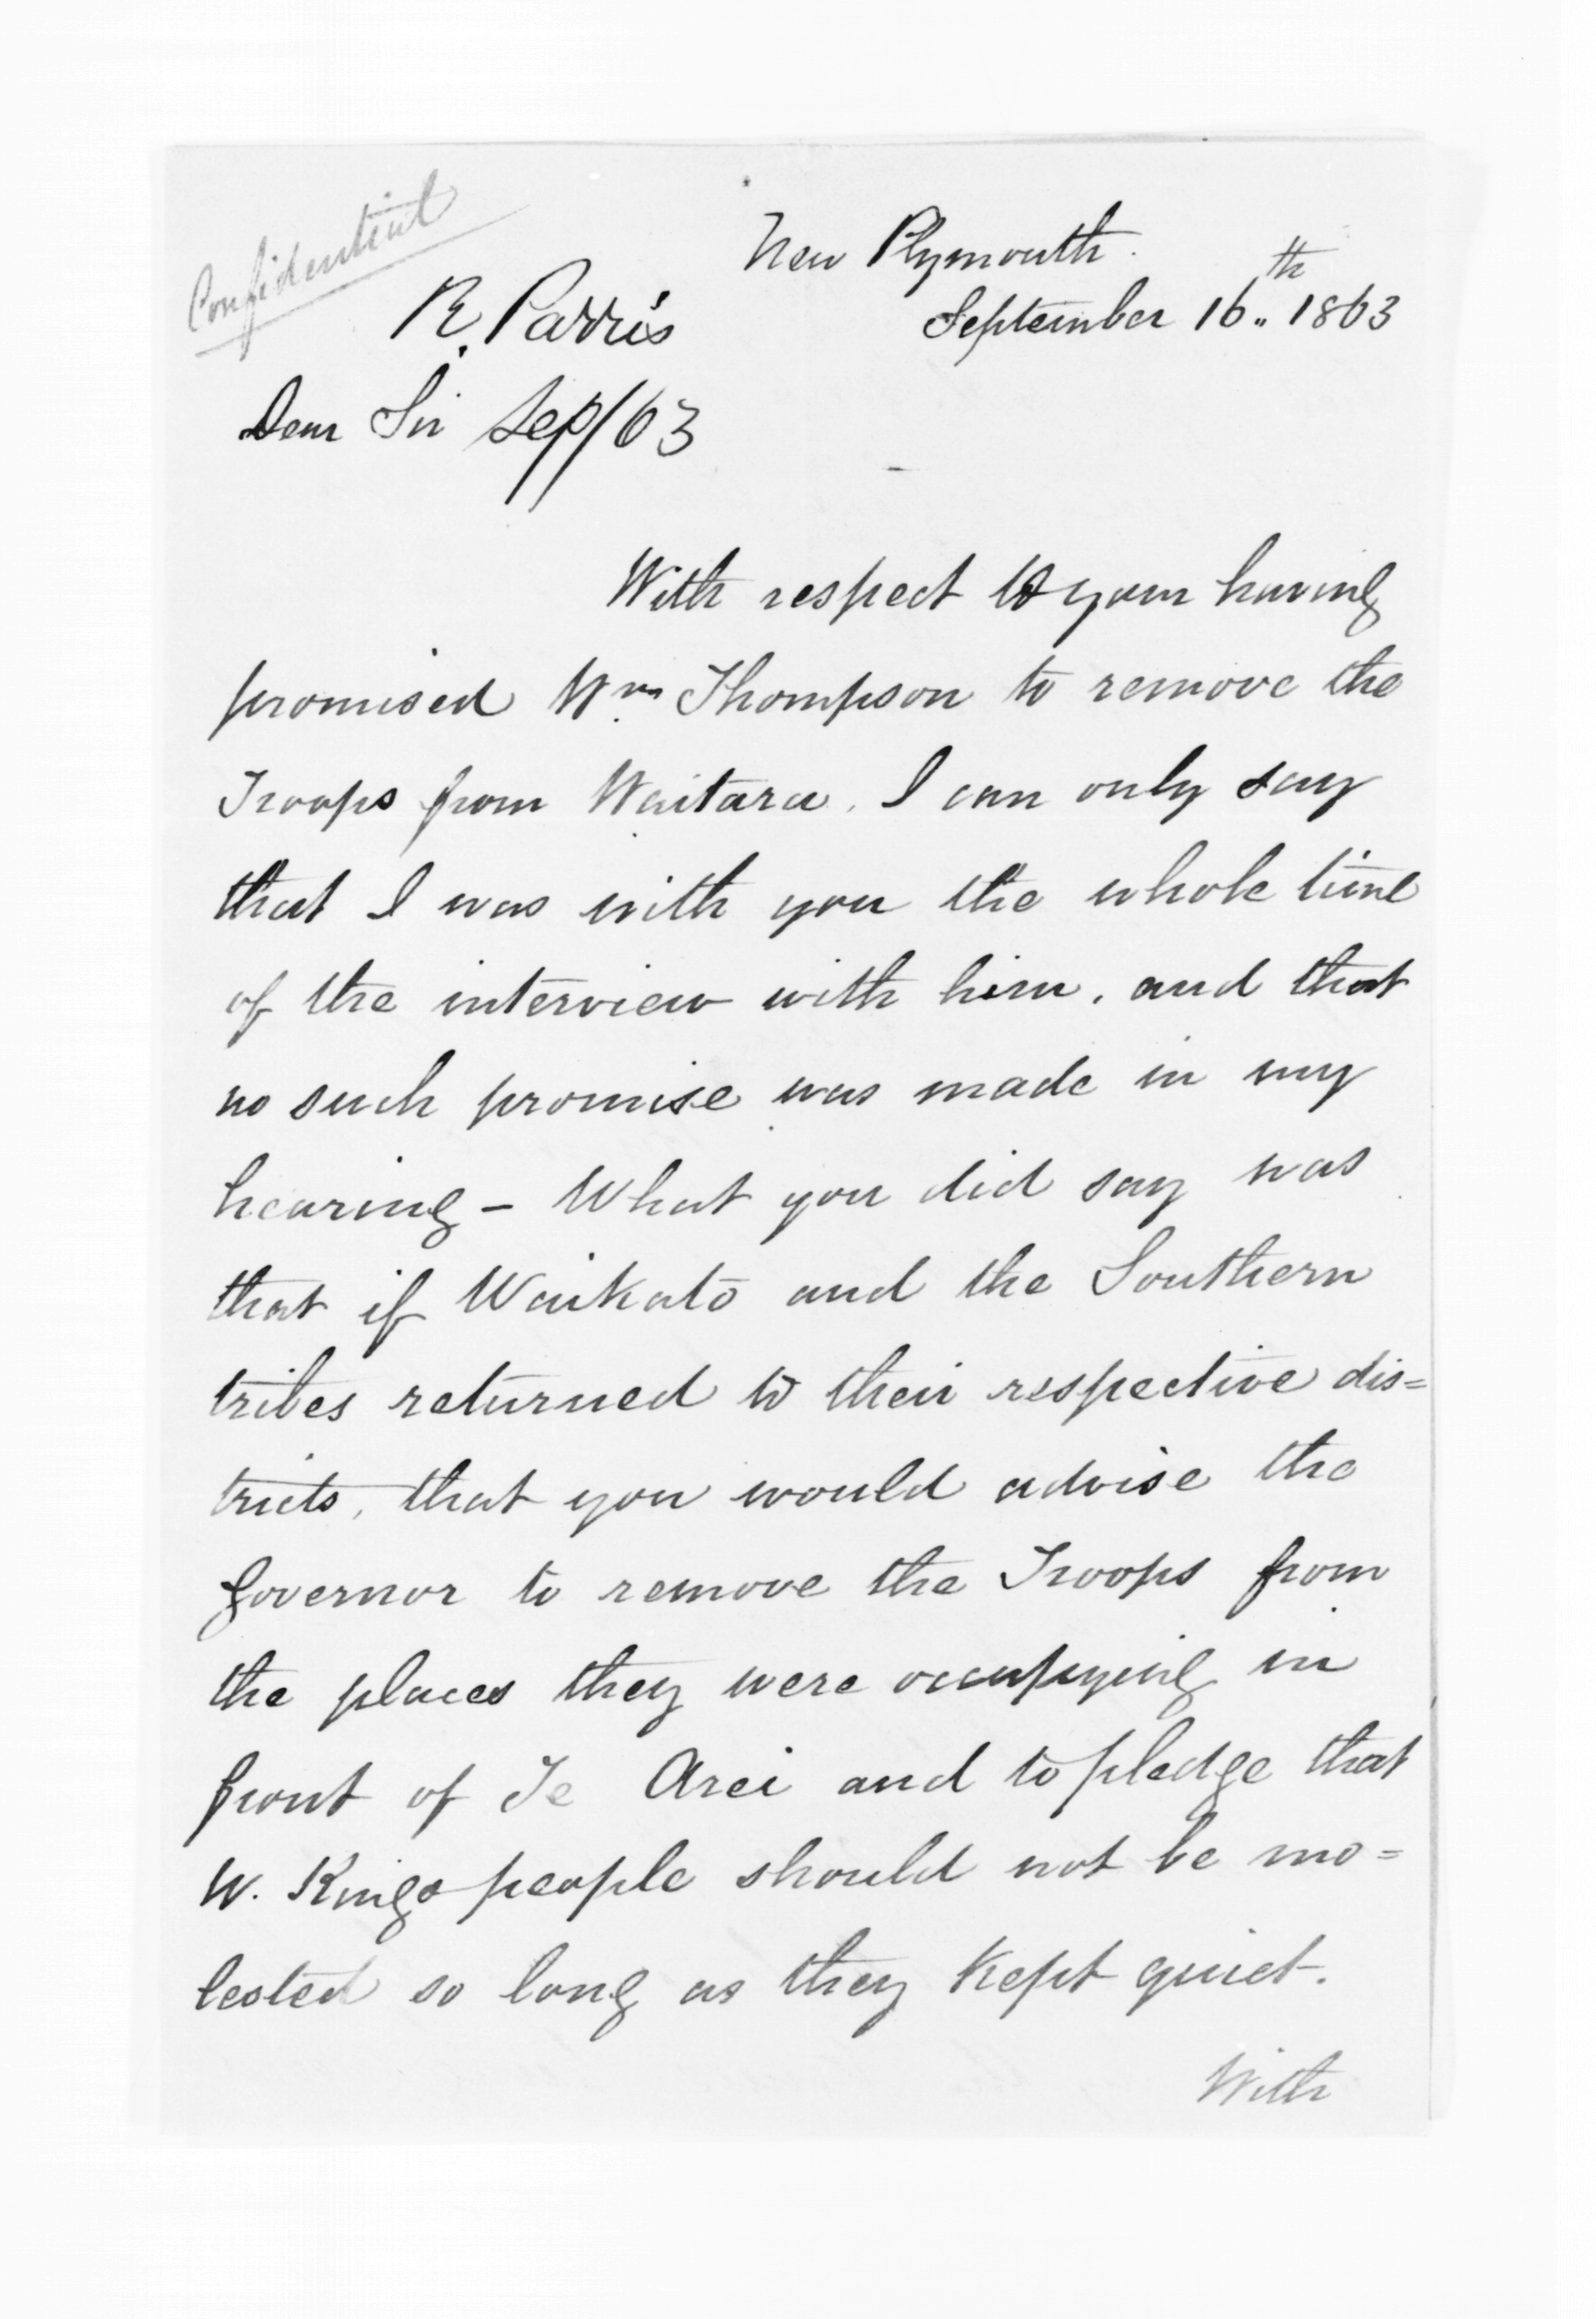 Confidential
New Plymouth.
September 16th 1863
R. Parris
Dear Sir Sep/63
With respect to your having
promised Wm Thompson to remove the
Troops from Waitara. I can only say
that I was with you the whole time
of the interview with him, and that
no such promise was made in my
hearing - What you did say was
that if Waikato and the Southern
tribes returned to their respective dis=
tricts, that you would advise the
Governor to remove the Troops from
the places they were occupying in
front of Te Arei and to pledge that
W. Kings people should not be mo=
lested so long as they kept quiet.
With